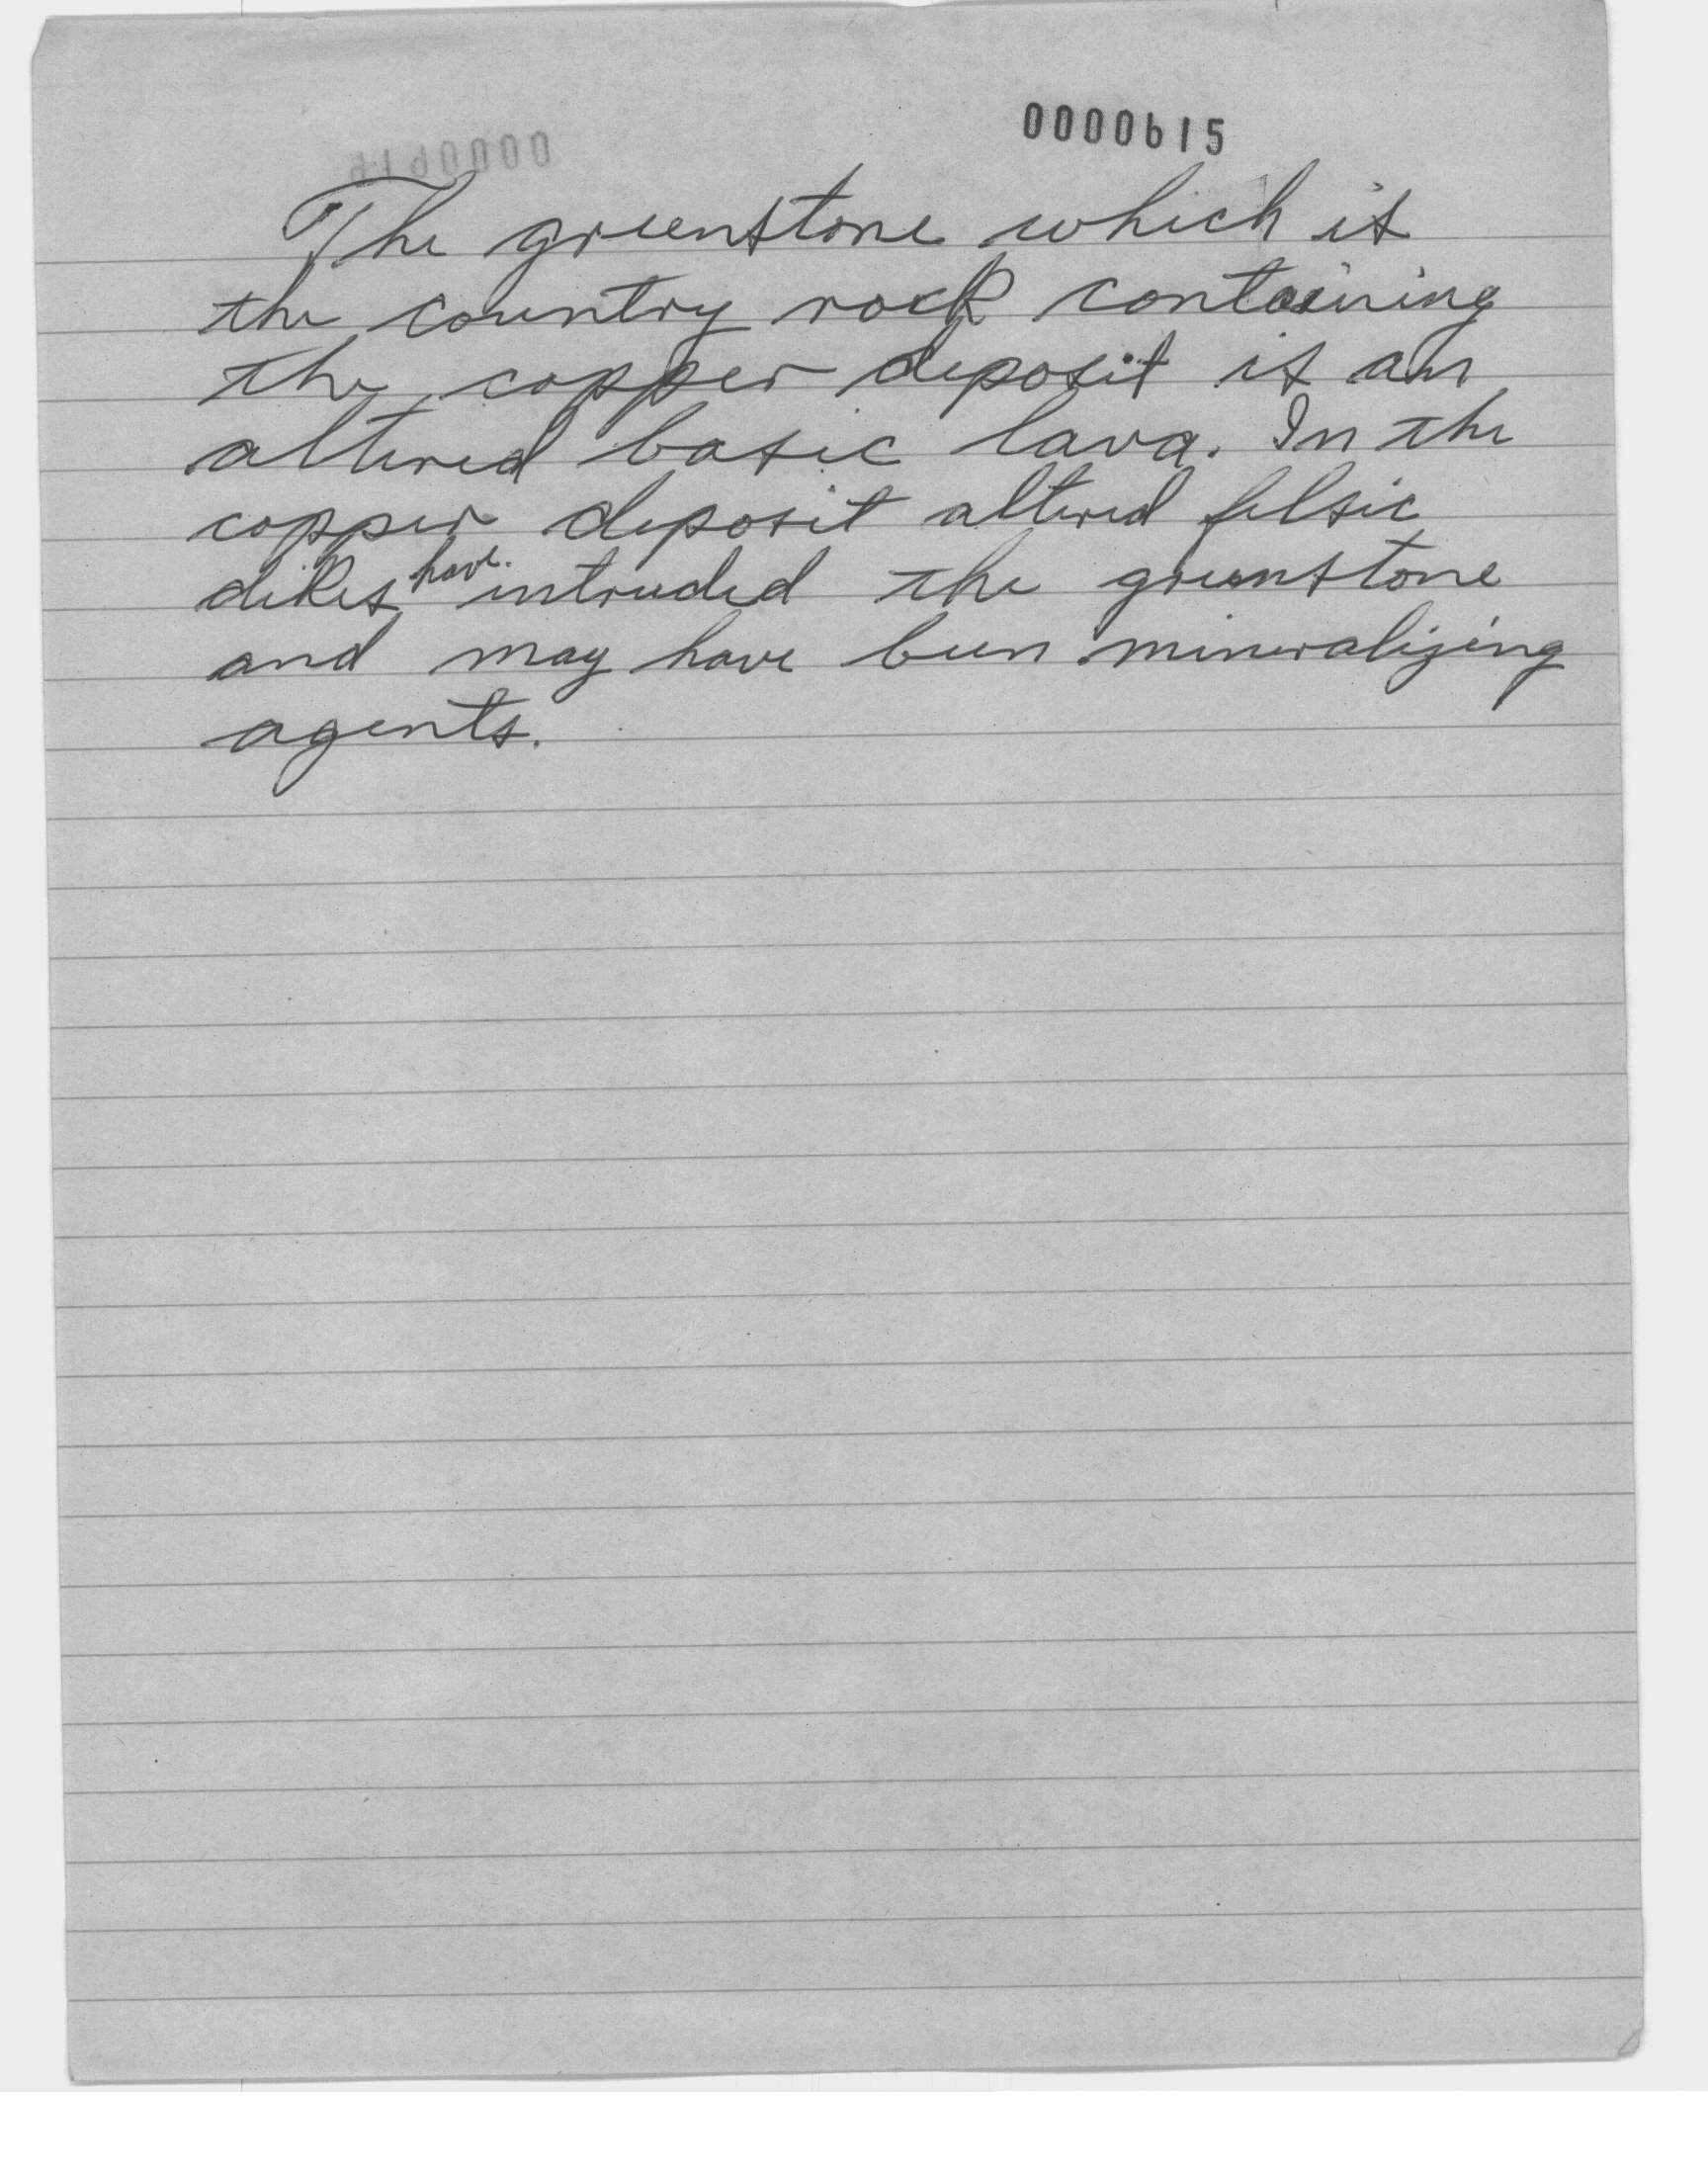 0000615
The greenstone which is
the country rock containing
the copper deposit is an
altered basic lava. In the
copper deposit altered felsic
dikes have intruded the greenstone
and may have been mineralizing
agents.